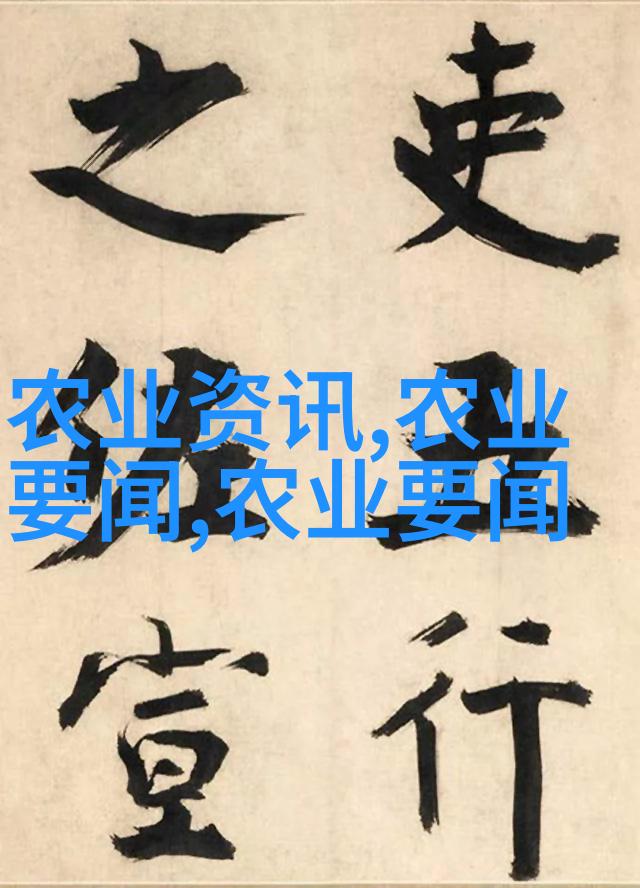 农业资讯,农业
要闻,农业要闻
吏五行
之佐宣